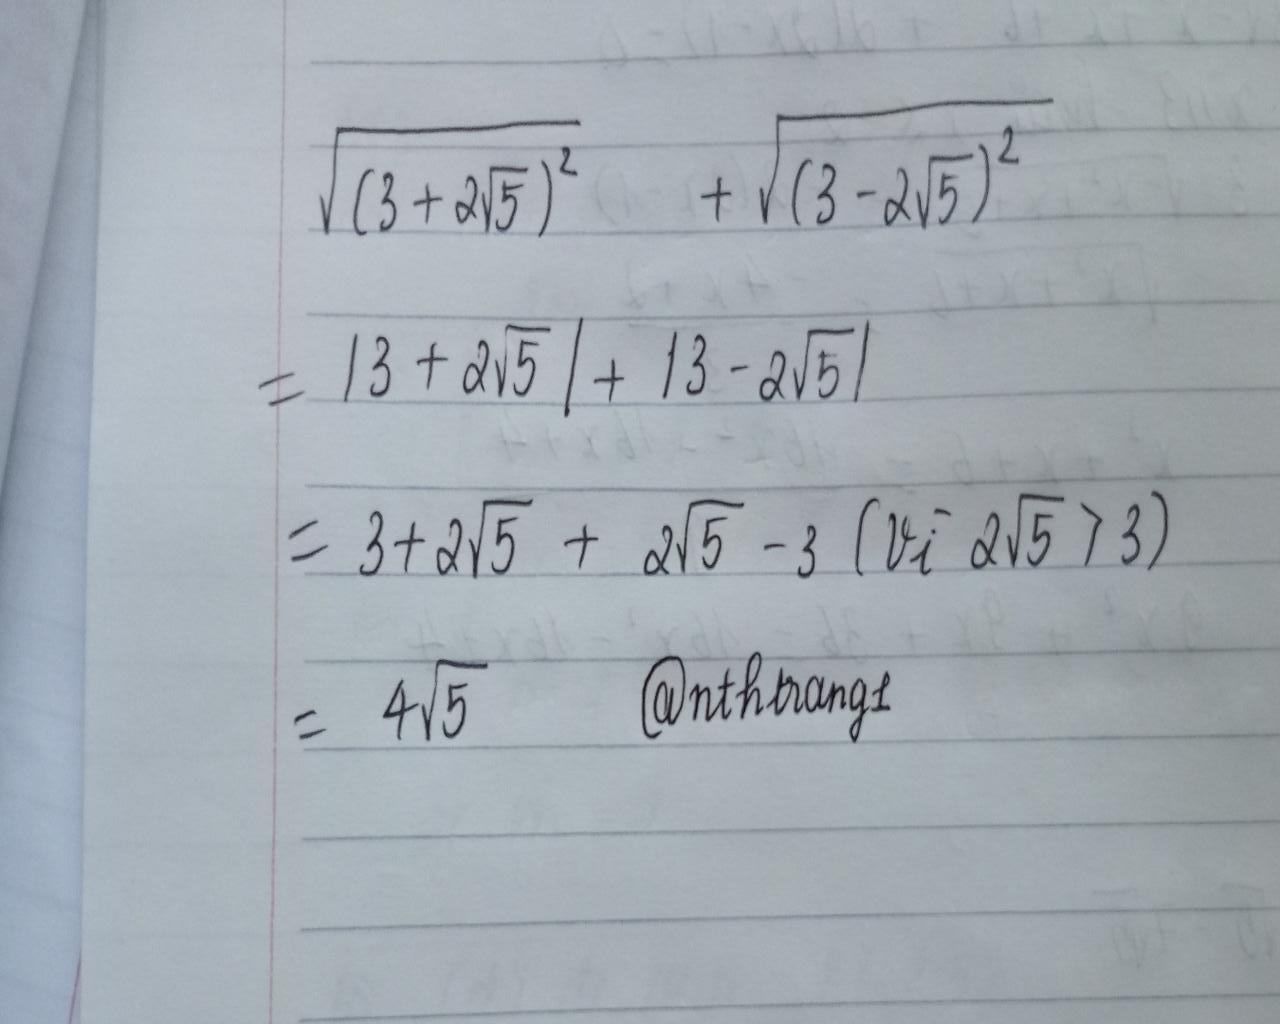 √(3 + 2√5)² + √(3 - 2√5)²
= |3 + 2√5| + |3 - 2√5|
= 3 + 2√5 + 2√5 - 3 (Vì 2√5 > 3)
= 4√5 @nthtrang1